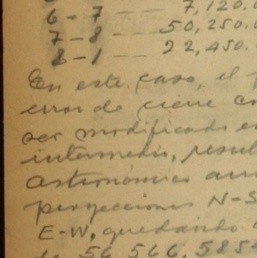 6 - 7 — 7,120.0
7 - 8 — 50,250.0
8 - 1 — 22,450.
En este caso, el
error de cierre
ser modificado
intermedio,
astronómico
proyecciones N-S
E-W, quedando
de 56,566,585